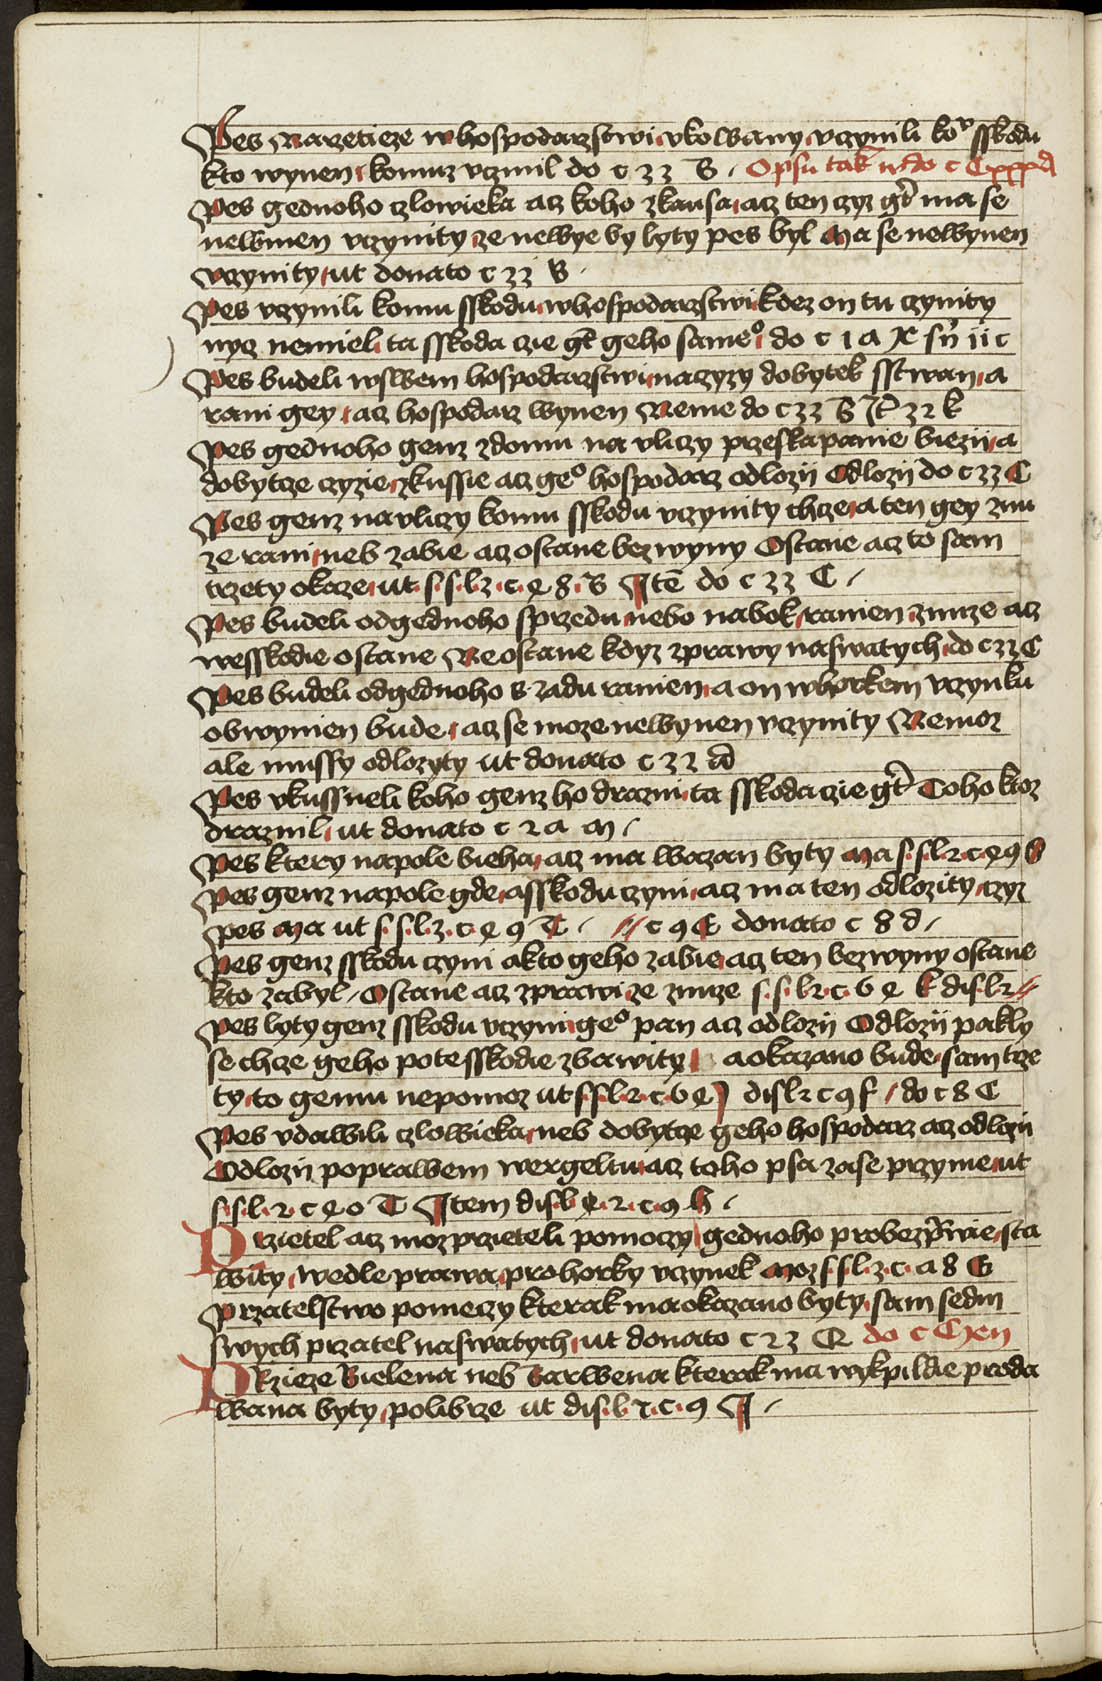 Pes Narzetieze whospodarzstwi vkowany vczynili kou sskodu
kto wynen komuz vczinil do c 33 B Opsu tak w do c Cxxxd
Pes gednoho czlowieka acz koho zkausa acz ten czyz gt ma se
newinen vczynity ze newye by lyty pes byl Ma se newynen
vczynity ut donato c 33 B
Pes vczynili komu sskodu whospodarzstwi kdez on tu czynity
nycz nemiel ta sskoda czie gt geho sameo do c 1 a
Pes budeli wswem hospodarzstwi naczyzy dobytek sstwan a
rani gey acz hospodarz wynen Neme do c 33 B It 32 k
Pes gednoho genz zdomu na vliczy przeskapanie biezij a
dobytcze czyzie zkussie acz geo hospodarz odlozij Odlozij do c 33 C
Pes genz navliczy komu sskodu vczynity chcze a ten gey znu
ze rani neb zabie acz ostane bezwyny Ostane acz to sam
trzety okaze ut s s l 3 c e 8 B Ite do c 33 C
Pes budeli odgednoho sprzedu nebo nabok ranien znuze acz
wesskodie ostane Neostane kdyz zprawy naswatych do c 33 C
Pes budeli odgednoho s zadu ranien a on whorkem vczynku
obwynien bude acz se moze newynen vczynity Nemoz
ale mussy odlozyty ut donato c 32 a
Pes vkussneli koho genz ho drazni ta sskoda czie gt Toho ktoz
draznil ut donato c 2 a m
Pes ktery napole bieha acz ma wazan byty Ma s s l 2 c e 9 B
Pes genz napole gde a sskodu czyni acz ma ten odlozity czyz
pes Ma ut s s l 3 c e 9 C c 9 C donato c 8 d
Pes genz sskodu czyni akto geho zabie acz ten bezwyny ostane
kto zabyl Ostane acz zprawi ze znuze s s l 2 c 6 e k dis l 2
Pes lyty genz sskodu vczyni geo pan acz odlozij Odlozij pakly
se chcze geho potesskodie zbawity a okazano bude sam trze
ty to gemu nepomoz ut s s l 2 c 6 e dis l 2 c 9 f do c 8 C
Pes vdawili czlowieka neb dobytcze geho hospodarz acz odlozij
Odlozij poprawem wergeltu acz toho psa zase przyme ut
s s l 2 c e 0 C Item dis l e 2 c 9 h
Przietel acz moz przieteli pomoczy gednoho probezprawie sta
wity wedle prawa prohorky vczynek Moz s s l 3 c a 8 G
przatelstwo pomoczy kterak ma okazano byty sam sedm
swych przatel naswatych ut donato c 23 Q do c Cxen
Przieze Bielena neb Barwena kterak ma wykpildie proda
wana byty polibrze ut dis l 2 c 9 J